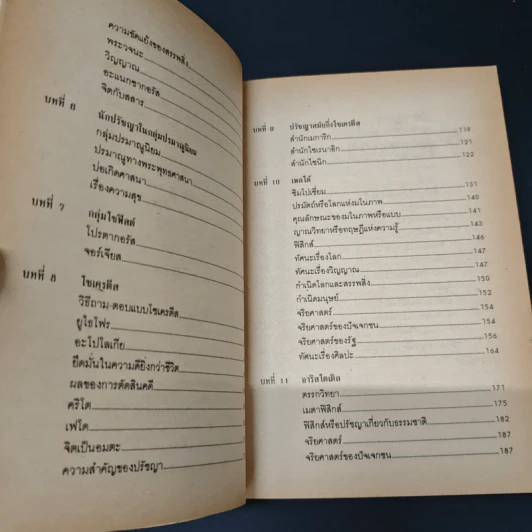 ความขัดแย้งของสรรพสิ่ง
พระวจนะ
วิญญาณ
อะแนกซากอรัส
จิตกับสสาร
บทที่ 6 นักปรัชญาในกลุ่มปรมาณูนิยม
กลุ่มปรมาณูนิยม
ปรมาณูทางพระพุทธศาสนา
บ่อเกิดศาสนา
เรื่องความสุข
บทที่ 7 กลุ่มโซฟิสต์
โปรตากอรัส
จอร์เจียส
บทที่ 8 โซเครตีส
วิธีถาม-ตอบแบบโซเครตีส
ยูไธโฟร
อะโปโลเกีย
ยึดมั่นในความดียิ่งกว่าชีวิต
ผลของการตัดสินคดี
คริโต
เฟโด
จิตเป็นอมตะ
ความสำคัญของปรัชญา
บทที่ 9 ปรัชญาสมัยกึ่งโซเครตีส
สำนักเมการิก 119
สำนักไซเรนาอิก 121
สำนักซินิก 122
บทที่ 10 เพลโต้
ซิมโปเซี่ยม 131
ปรมัตถ์หรือโลกแห่งมโนภาพ 140
คุณลักษณะของมโนภาพหรือแบบ 141
ญาณวิทยาหรือทฤษฎีแห่งความรู้ 145
ฟิสิกส์ 146
ทัศนะเรื่องโลก 147
ทัศนะเรื่องวิญญาณ 147
กำเนิดโลกและสรรพสิ่ง 150
กำเนิดมนุษย์ 152
จริยศาสตร์ 154
จริยศาสตร์ของปัจเจกชน 154
จริยศาสตร์ของรัฐ 156
ทัศนะเรื่องศิลปะ 164
บทที่ 11 อาริสโตเติล
ตรรกวิทยา 171
เมตาฟิสิกส์ 175
ฟิสิกส์หรือปรัชญาเกี่ยวกับธรรมชาติ 182
จริยศาสตร์ 187
จริยศาสตร์ของปัจเจกชน 187